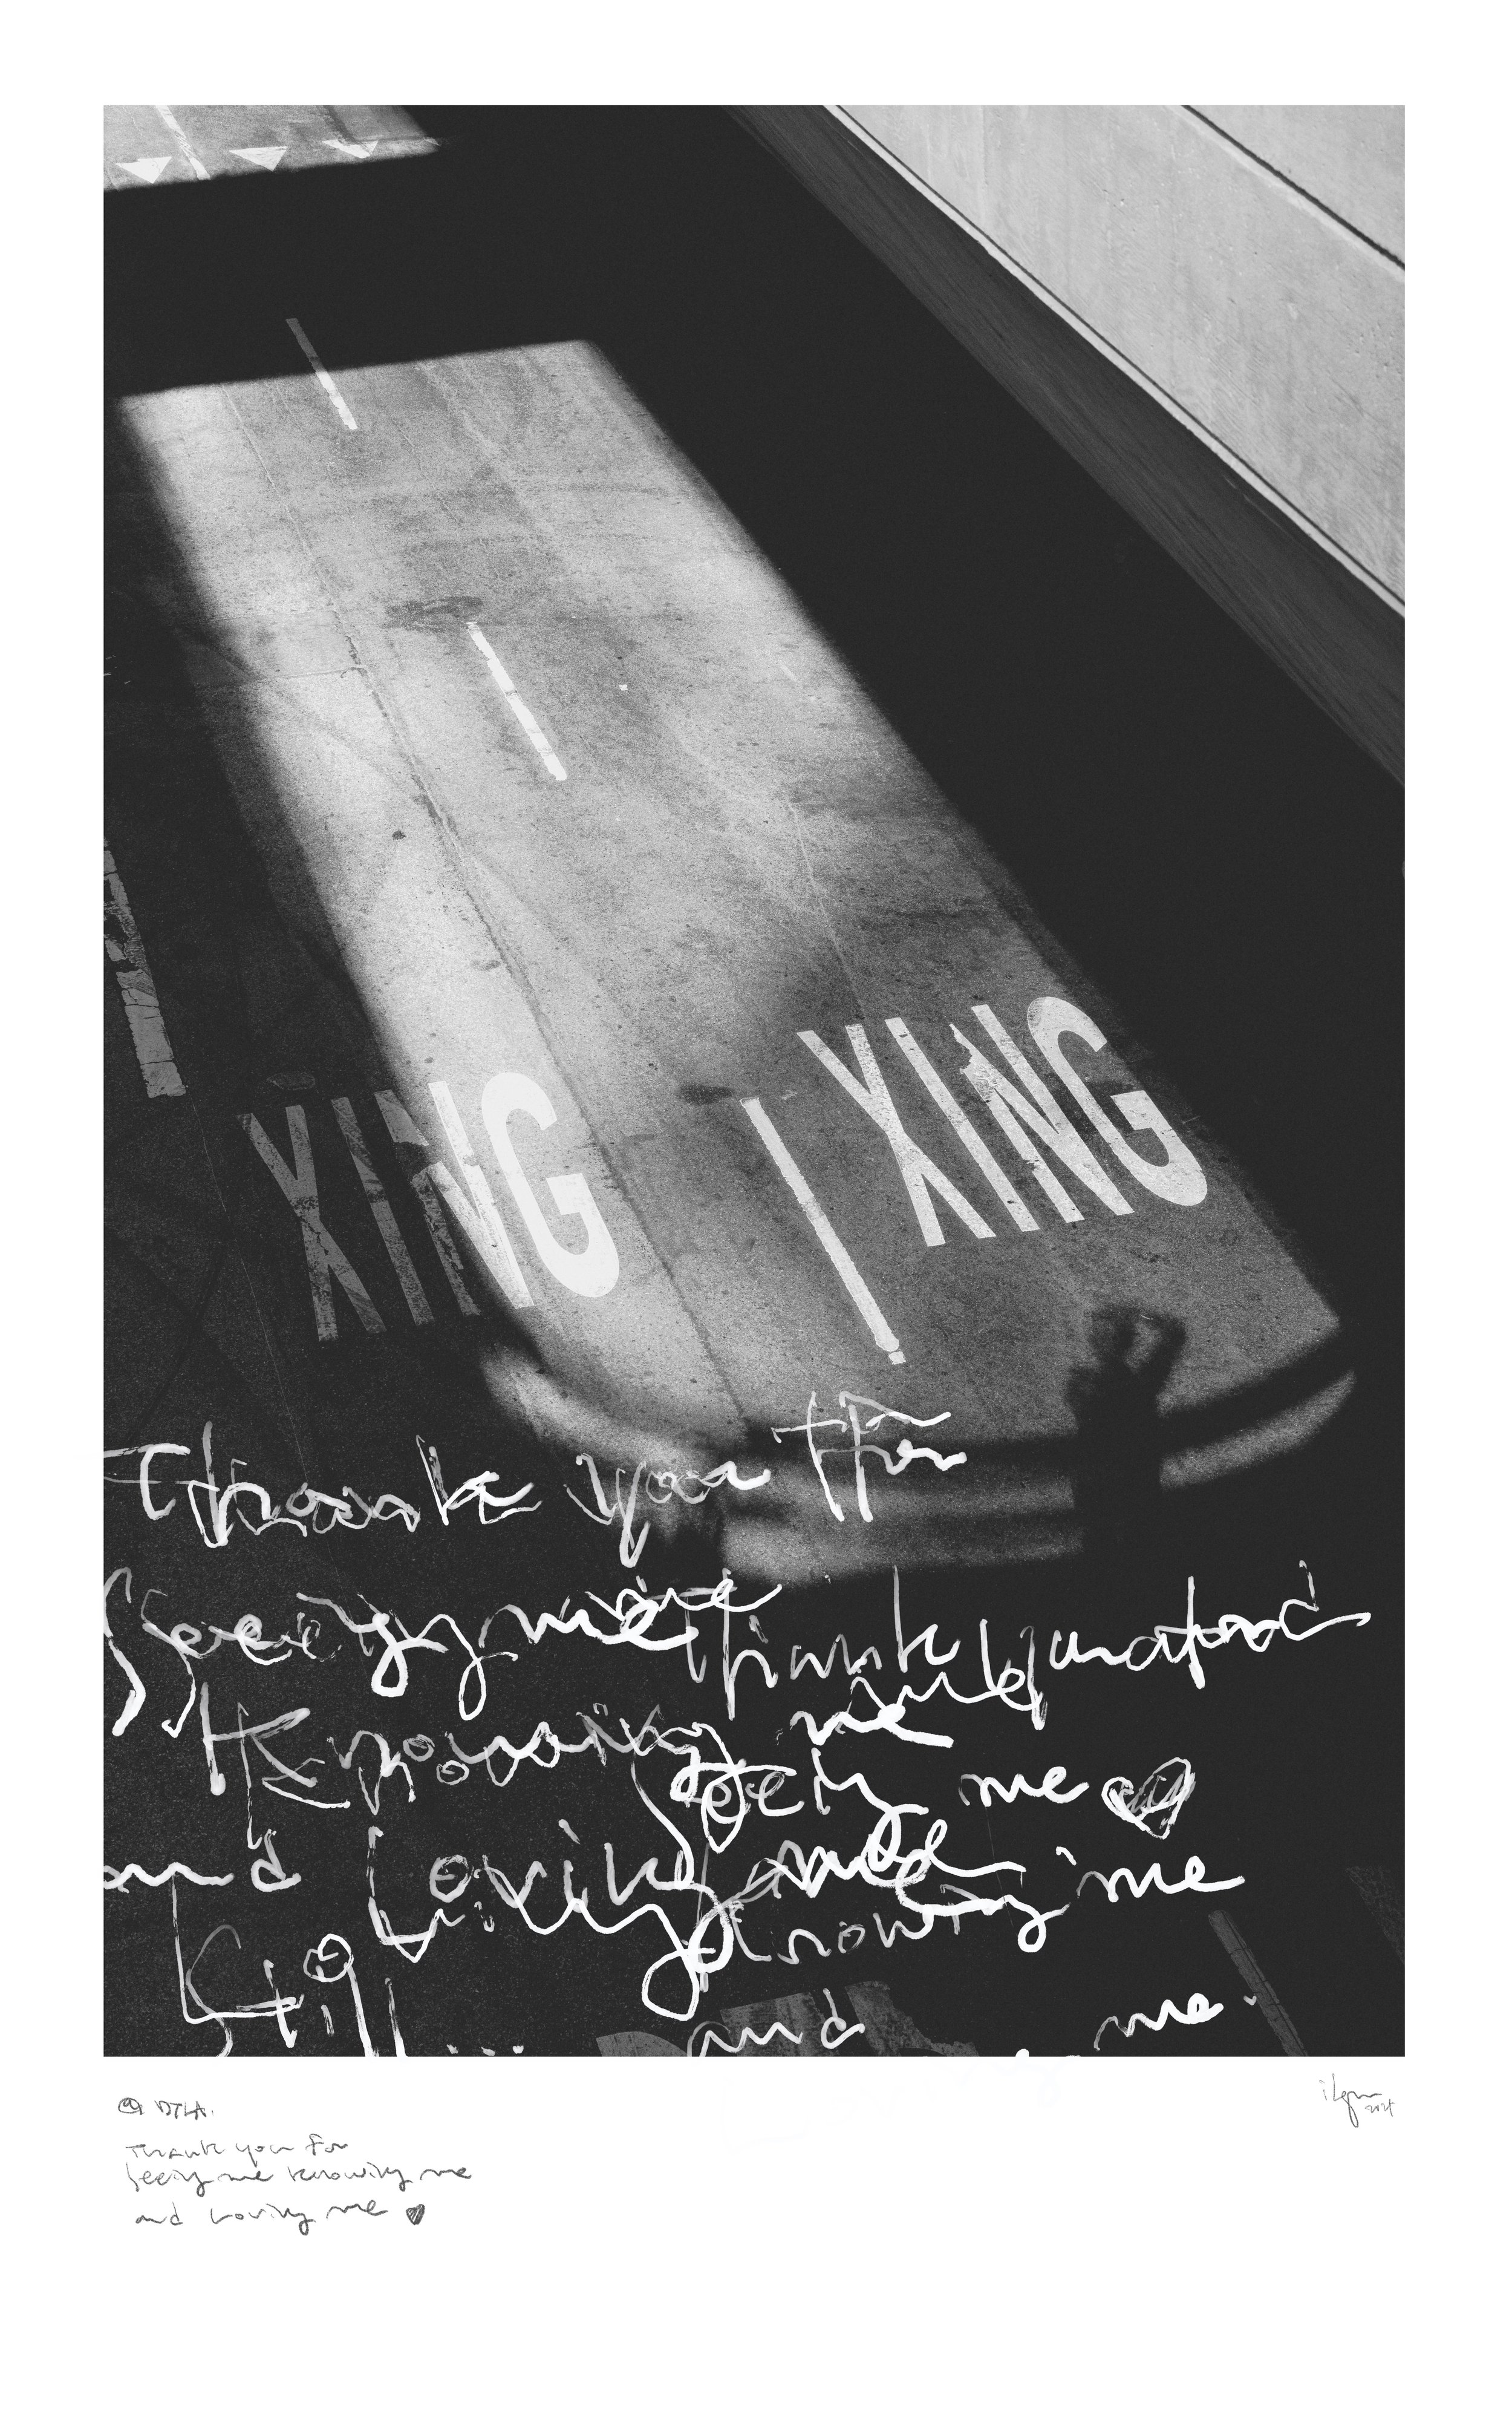 XING
XING
Thank you for
Seeing me
Thank you
Knowing me
Seeing me
and Loving me
Knowing me
Still...
and me.
@ DTLA.
Thank you for
Seeing me knowing me
and Loving me